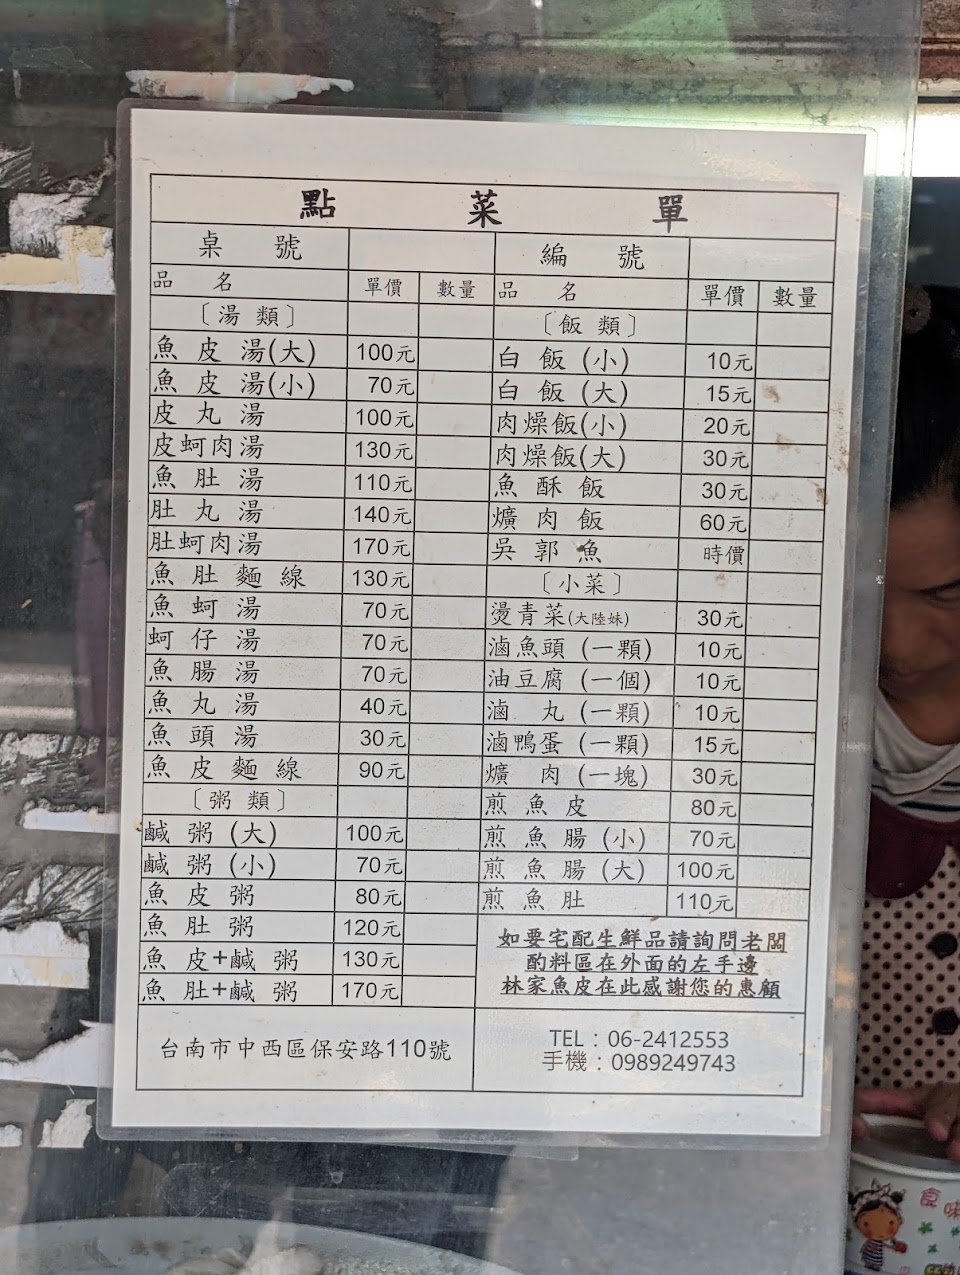 點 菜 單
桌 號 編 號
品 名 單價 數量 品 名 單價 數量
〔湯 類〕 〔飯 類〕
魚 皮 湯(大) 100元 白 飯 (小) 10元
魚 皮 湯(小) 70元 白 飯 (大) 15元
皮 丸 湯 100元 肉燥飯(小) 20元
皮蚵肉湯 130元 肉燥飯(大) 30元
魚 肚 湯 110元 魚 酥 飯 30元
肚 丸 湯 140元 爌 肉 飯 60元
肚蚵肉湯 170元 吳 郭 魚 時價
魚 肚 麵 線 130元 〔小菜〕
魚 蚵 湯 70元 燙青菜(大陸妹) 30元
蚵 仔 湯 70元 滷魚頭 (一顆) 10元
魚 腸 湯 70元 油豆腐 (一個) 10元
魚 丸 湯 40元 滷 丸 (一顆) 10元
魚 頭 湯 30元 滷鴨蛋 (一顆) 15元
魚 皮 麵 線 90元 爌 肉 (一塊) 30元
〔粥 類〕 煎 魚 皮 80元
鹹 粥 (大) 100元 煎 魚 腸 (小) 70元
鹹 粥 (小) 70元 煎 魚 腸 (大) 100元
魚 皮 粥 80元 煎 魚 肚 110元
魚 肚 粥 120元
魚 皮+鹹 粥 130元
魚 肚+鹹 粥 170元
如要宅配生鮮品請詢問老闆
酌料區在外面的左手邊
林家魚皮在此感謝您的惠顧
台南市中西區保安路110號
TEL：06-2412553
手機：0989249743
食